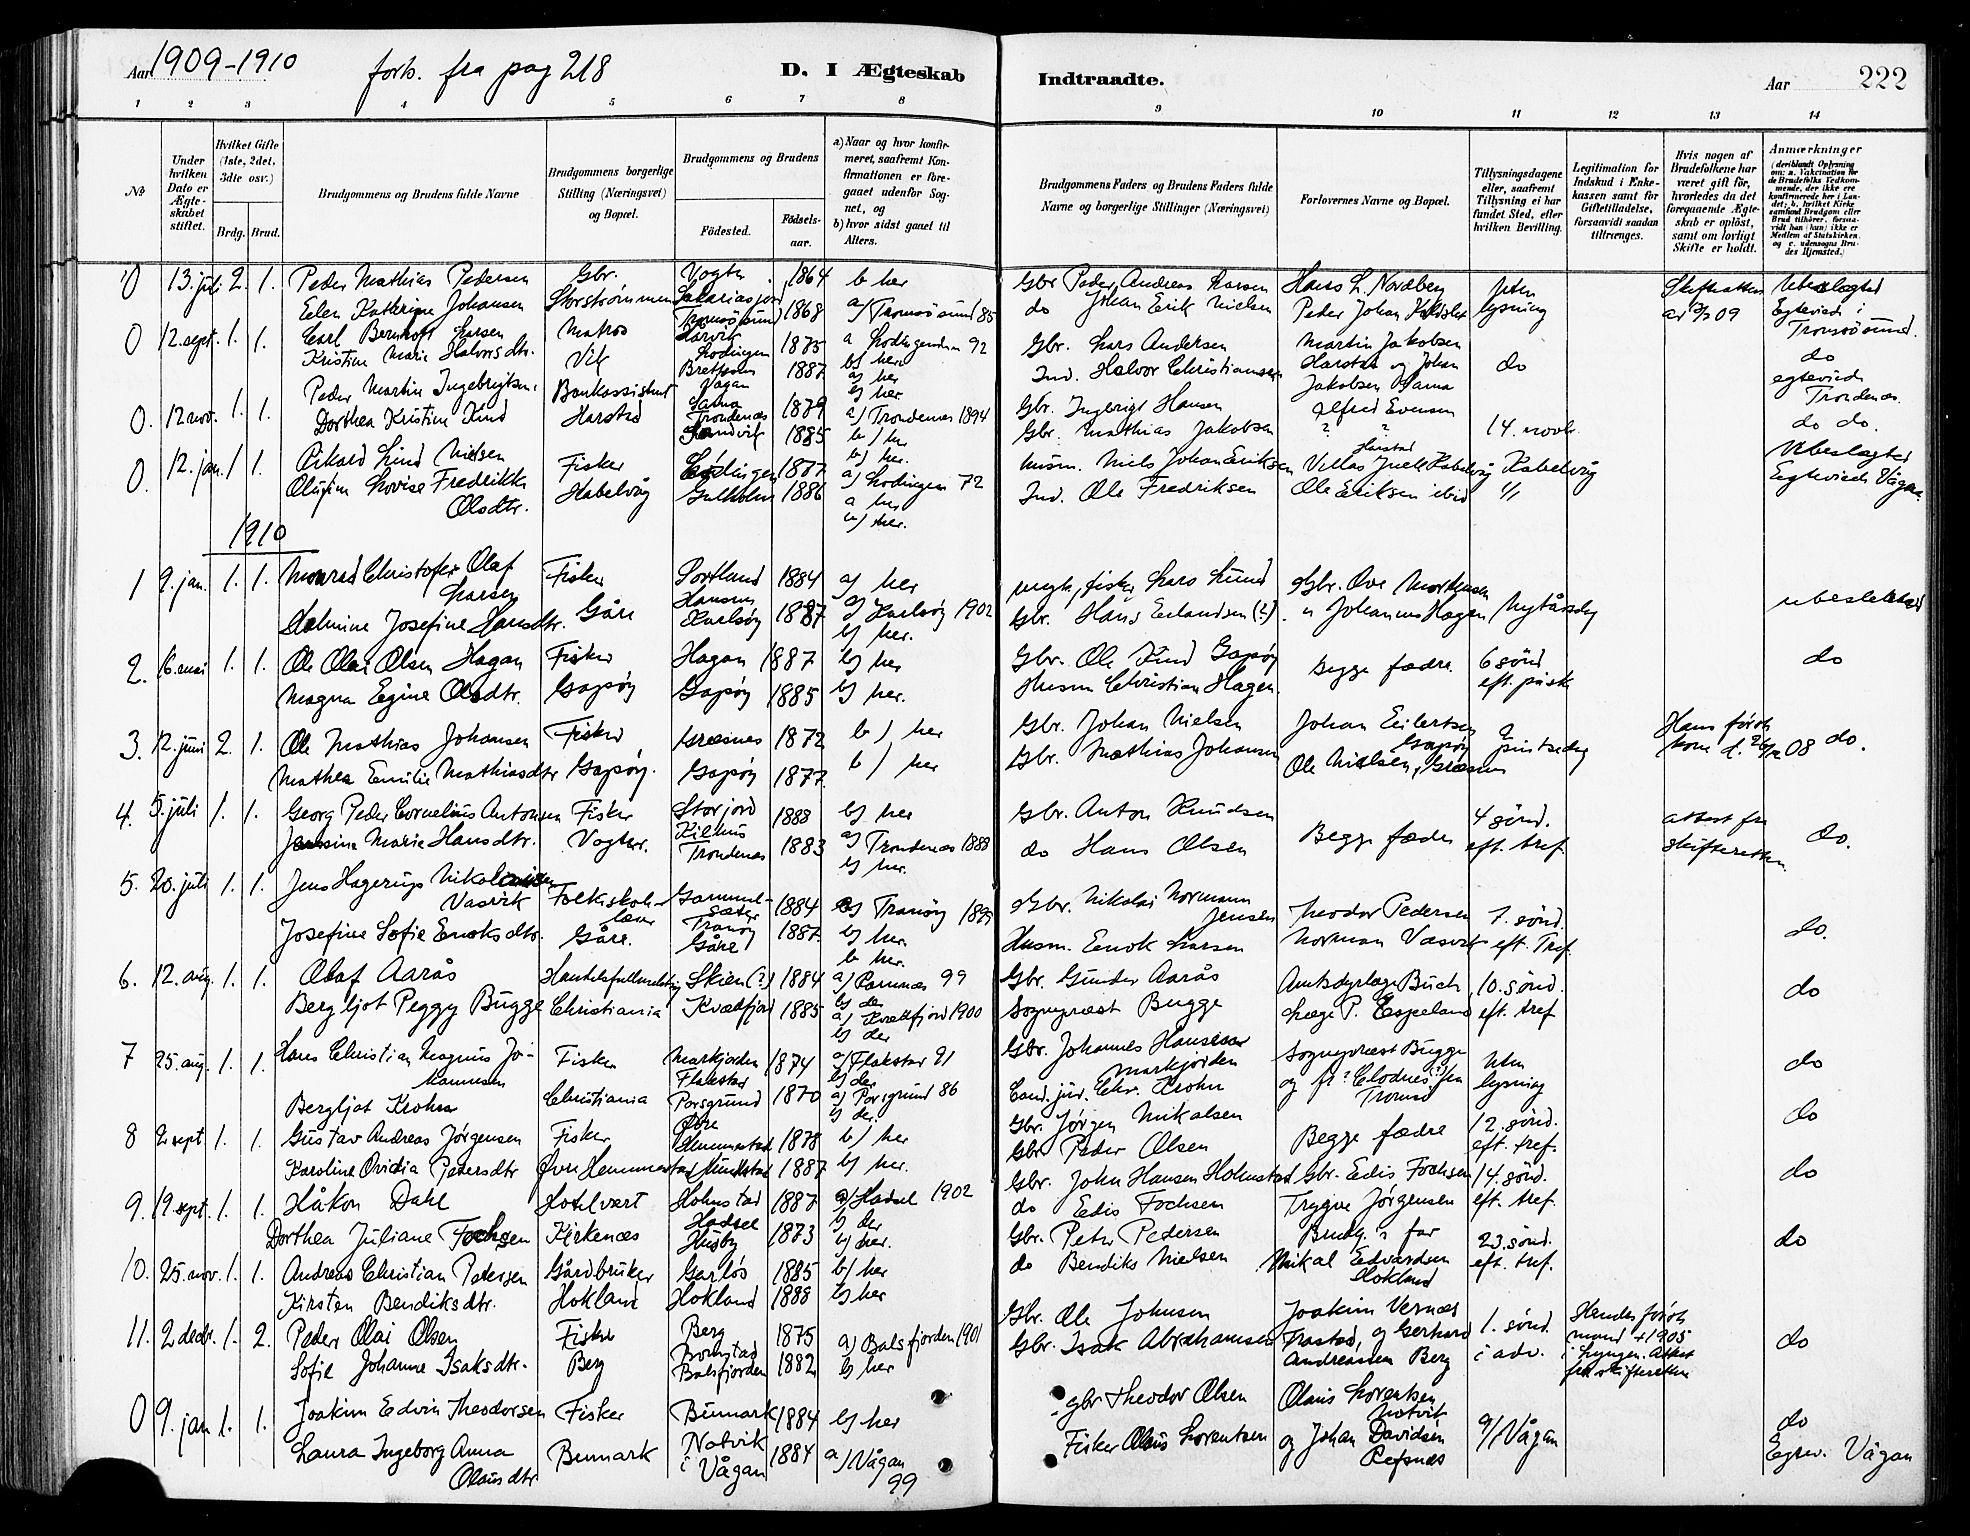 Aar 1909-1910 forts. fra pag 218 D. I Ægteskab Indtraadte. Aar 222
1 2 3 4 5 6 7 8 9 10 11 12 13 14
No
Under hvilken Dato er Ægteskabet stiftet.
Hvilket Gifte (1ste, 2det, 3dte osv.)
Brdg. Brud.
Brudgommens og Brudens fulde Navne
Brudgommens borgerlige Stilling (Næringsvei) og Bopæl.
Brudgommens og Brudens
Fødested. Fødselsaar.
a) Naar og hvor konfirmeret, saafremt Konfirmationen er foregaaet udenfor Sognet, og
b) hvor sidst gaaet til Alters.
Brudgommens Faders og Brudens Faders fulde Navne og borgerlige Stillinger (Næringsvei)
Forlovernes Navne og Bopæl.
Tillysningsdagene eller, saafremt Tillysning ei har fundet Sted, efter hvilken Bevilling.
Legitimation for Indskud i Enkekassen samt for Giftetilladelse, forsaavidt saadan tiltrænges.
Hvis nogen af Brudefolkene har været gift før, hvorledes da det foregaaende Ægteskab er opløst, samt om lovligt Skifte er holdt.
Anmærkninger (deriblandt Oplysning om: a. Vakcination for de Brudefolks Vedkommende, der ikke ere konfirmerede her i Landet; b. hvilket Kirkesamfund Brudgom eller Brud tilhører, forsaavidt han (hun) ikke er Medlem af Statskirken, og c. udensogns Brudes Hjemsted.)
0 13. juli 2. 1. Peder Mathias Pedersen Gbr. Vogter 1864 b her Gbr Peder Andreas Larsen Hans L. Nordberg Uten Skifteattest Ubeslægted
Elen Kathrine Johansen Storstrømmen Tromsøsund 1868 a) Tromsøsund 85 do Johan Erik Nielsen Peder Johan lysning 09 Egteviede i Tromsøsund
0 12. sept. 1. 1. Carl Bernhoft Larsen Matros 1875 a Lodingen 92 Gbr. Lars Andersen Martin Jakobsen do do
Kristine Marie Halvorsdtr. Vik Lodingen 1887 b) her Ind. Halvor Christiansen Harstad og Johan Jakobsen Sama egteviede Trondenes
0. 12 nov. 1. 1. Peder Martin Ingebrigtsen Bankassistent Vågan Sama 1879 a) her b) her Gbr. Ingbrigt Hansen Alfred Evensen 14. novb. do do.
Dorthea Kristine Kind Harstad Trondenes Sandvik 1885 a) Trondenes 1894 b) her Gbr. Mathias Jakobsen ? ? Harstad
0. 12. jan. 1 1. Rikard Lind Nielsen Fisker Lødingen 1877 b) her. a) Lodingen 72 Husm. Niels Johan Eriksen Villas Juell Kabelvåg Kabelvåg Ubeslægted
Olufine Lovise Fredrikke Olsdtr. Kabelvåg Gulholm 1886 a her b) her. Ind. Ole Fredriksen Ole Eriksen ibid 1/1 Egteviede Vågan
1910
1 9. jan. 1. 1. Monrad Christofer Olaf Larsen Fisker Portland 1884 a) her fisker Lars Lund Gbr. Ove Mortensen Nytårsdag ubeslektet
Halmine Josefine Hansdtr. Gåre Hansnes Karlsøy 1887 a) Karlsøy 1902 b) her. Gbr. Hans Erlandsen (?) " Johannes Hagen
2. 16. mai 1. 1. Ole Olai Olsen Hagan Fisker Hagan 1887 b) her Gbr. Ole Kind Gapøy Begge fædre. 6 sønd. eft. påsk do
Magna Egine Olsdtr. Gapøy Gapøy 1885 b) her. Husm Christian Hagen.
3. 12. juni 2. 1. Ole Mathias Johansen Fisker Græsnes 1872 b) her Gbr. Johan Nielsen Johan Eilertsen Gapøy 2 pintsedag Hans første kone d. 26/12 08 do.
Mathea Emilie Mathiasdtr Gapøy. Gapøy 1877 b) her Gbr. Mathias Johansen Ole Nielsen, Græsnes
4. 5. juli 1. 1. Georg Peder Cornelius Antonsen Fisker Storjord 1888 b) her Gbr. Anton Knudsen Begge fædre 4 sønd. eft. tref. attest fra skifteretten do.
Jensine Marie Hansdtr. Vogter. Kilhus Trondenes 1883 a) Trondenes 1888 b) her. do Hans Olsen
5. 20. juli 1. 1. Jens Hagerup Nikolaisen Vasvik Folkeskolelærer Gammelsæter Tranøy 1884 a) Tranøy 1899 b) her. Gbr. Nikolai Normann Jensen Theodor Pedersen 7. sønd. eft. Tref do.
Josefine Sofie Enoksdtr. Gåre. Gåre 1887. b her. Husm. Enok Larsen Norman Vasvik
6. 12. aug. 1. 1. Olaf Aarås Handelsfullmektig Skien (?) 1884 a) Ramnes 99 b) der Gbr. Gunder Aarås Amtsdyrlæge Buch 10. sønd. eft. tref do
Bergljot Peggy Bugge Christiania Kvædfjord 1885 a) Kvædfjord 1900 b) der Sogneprest Bugge Læge P. Espeland
7 25. aug. 1. 1. Hans Christian Magnus Johannesen Fisker Markjorden Flakstad 1874 a) Flakstad 91 b) der Gbr. Johannes Hansen Markjorden Sogneprest Bugge Uten lysning do
Bergljot Krohn Christiania Porsgrund 1870 a) Porsgrund 86 b) der. Cand. jur. Chr. Krohn og fr. ? Clodnes (?) fra Tromsø
8 2 sept 1. 1. Gustav Andreas Jørgensen Fisker Øvre Hemmestad 1878 b) her Gbr. Jørgen Mikalsen Begge fædre 12. sønd. eft. tref. do
Karoline Ovidia Petersdtr Øvre Hemmestad Hundstad 1887 b) her. Gbr Peder Olsen
9. 19. sept. 1. 1. Håkon Dahl Hotelvert Holmstad Hadsel 1887 a) Hadsel 1902 b) der Gbr. John Hansen Holmstad Gbr. Edis Fochsen 14. sønd. eft. tref. do
Dorthea Juliane Fochsen Kirkenæs Husby 1873 b) her. do Edis Fochsen Trygve Jørgensen
10. 25. nov. 1. 1. Andreas Christian Petersen Gårdbruker Garløs 1885 b) her Gbr. Petr Pedersen Brudg.s far 23. sønd. eft. tref. do
Kirsten Bendiksdtr. Hokland Hokland 1888 b) her do Bendiks Nielsen Mikal Edvardsen Hokland
11. 2 decbr. 1. 2. Peder Olai Olsen Fisker Berg 1875 a) Balsfjorden 1901 Gbr. Ole Johnsen Joakim Vernæs 1. sønd. i adv. Hendes første mand +1905 i Lyngen. Attest fra skifteretten do
Sofie Johanne Isaksdtr. Berg Balsfjorden 1882 b) her Gbr. Isak Abrahamsen Trastad, og Gerhard Andreassen Berg
0 9. jan 1. 1. Joakim Edvin Theodorsen Fisker Bumark 1884 b) her gbr Theodor Olsen Olaus Lorentsen Notvik 9/1 Vågan do
Laura Ingeborg Anna Olausdtr Bumark Notvik i Vågan 1884 a) Vågan 99 Fisker Olaus Lorentsen og Johan Davidsen Refsnæs Egtev. Vågan